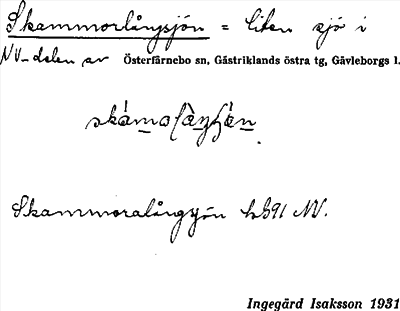 Skammorlångsjön = liten sjö i
NV-delen av Österfärnebo sn, Gästriklands östra tg, Gävleborgs l.
Skammoralångsjön bl 91 NV.
Ingegärd Isaksson 1931